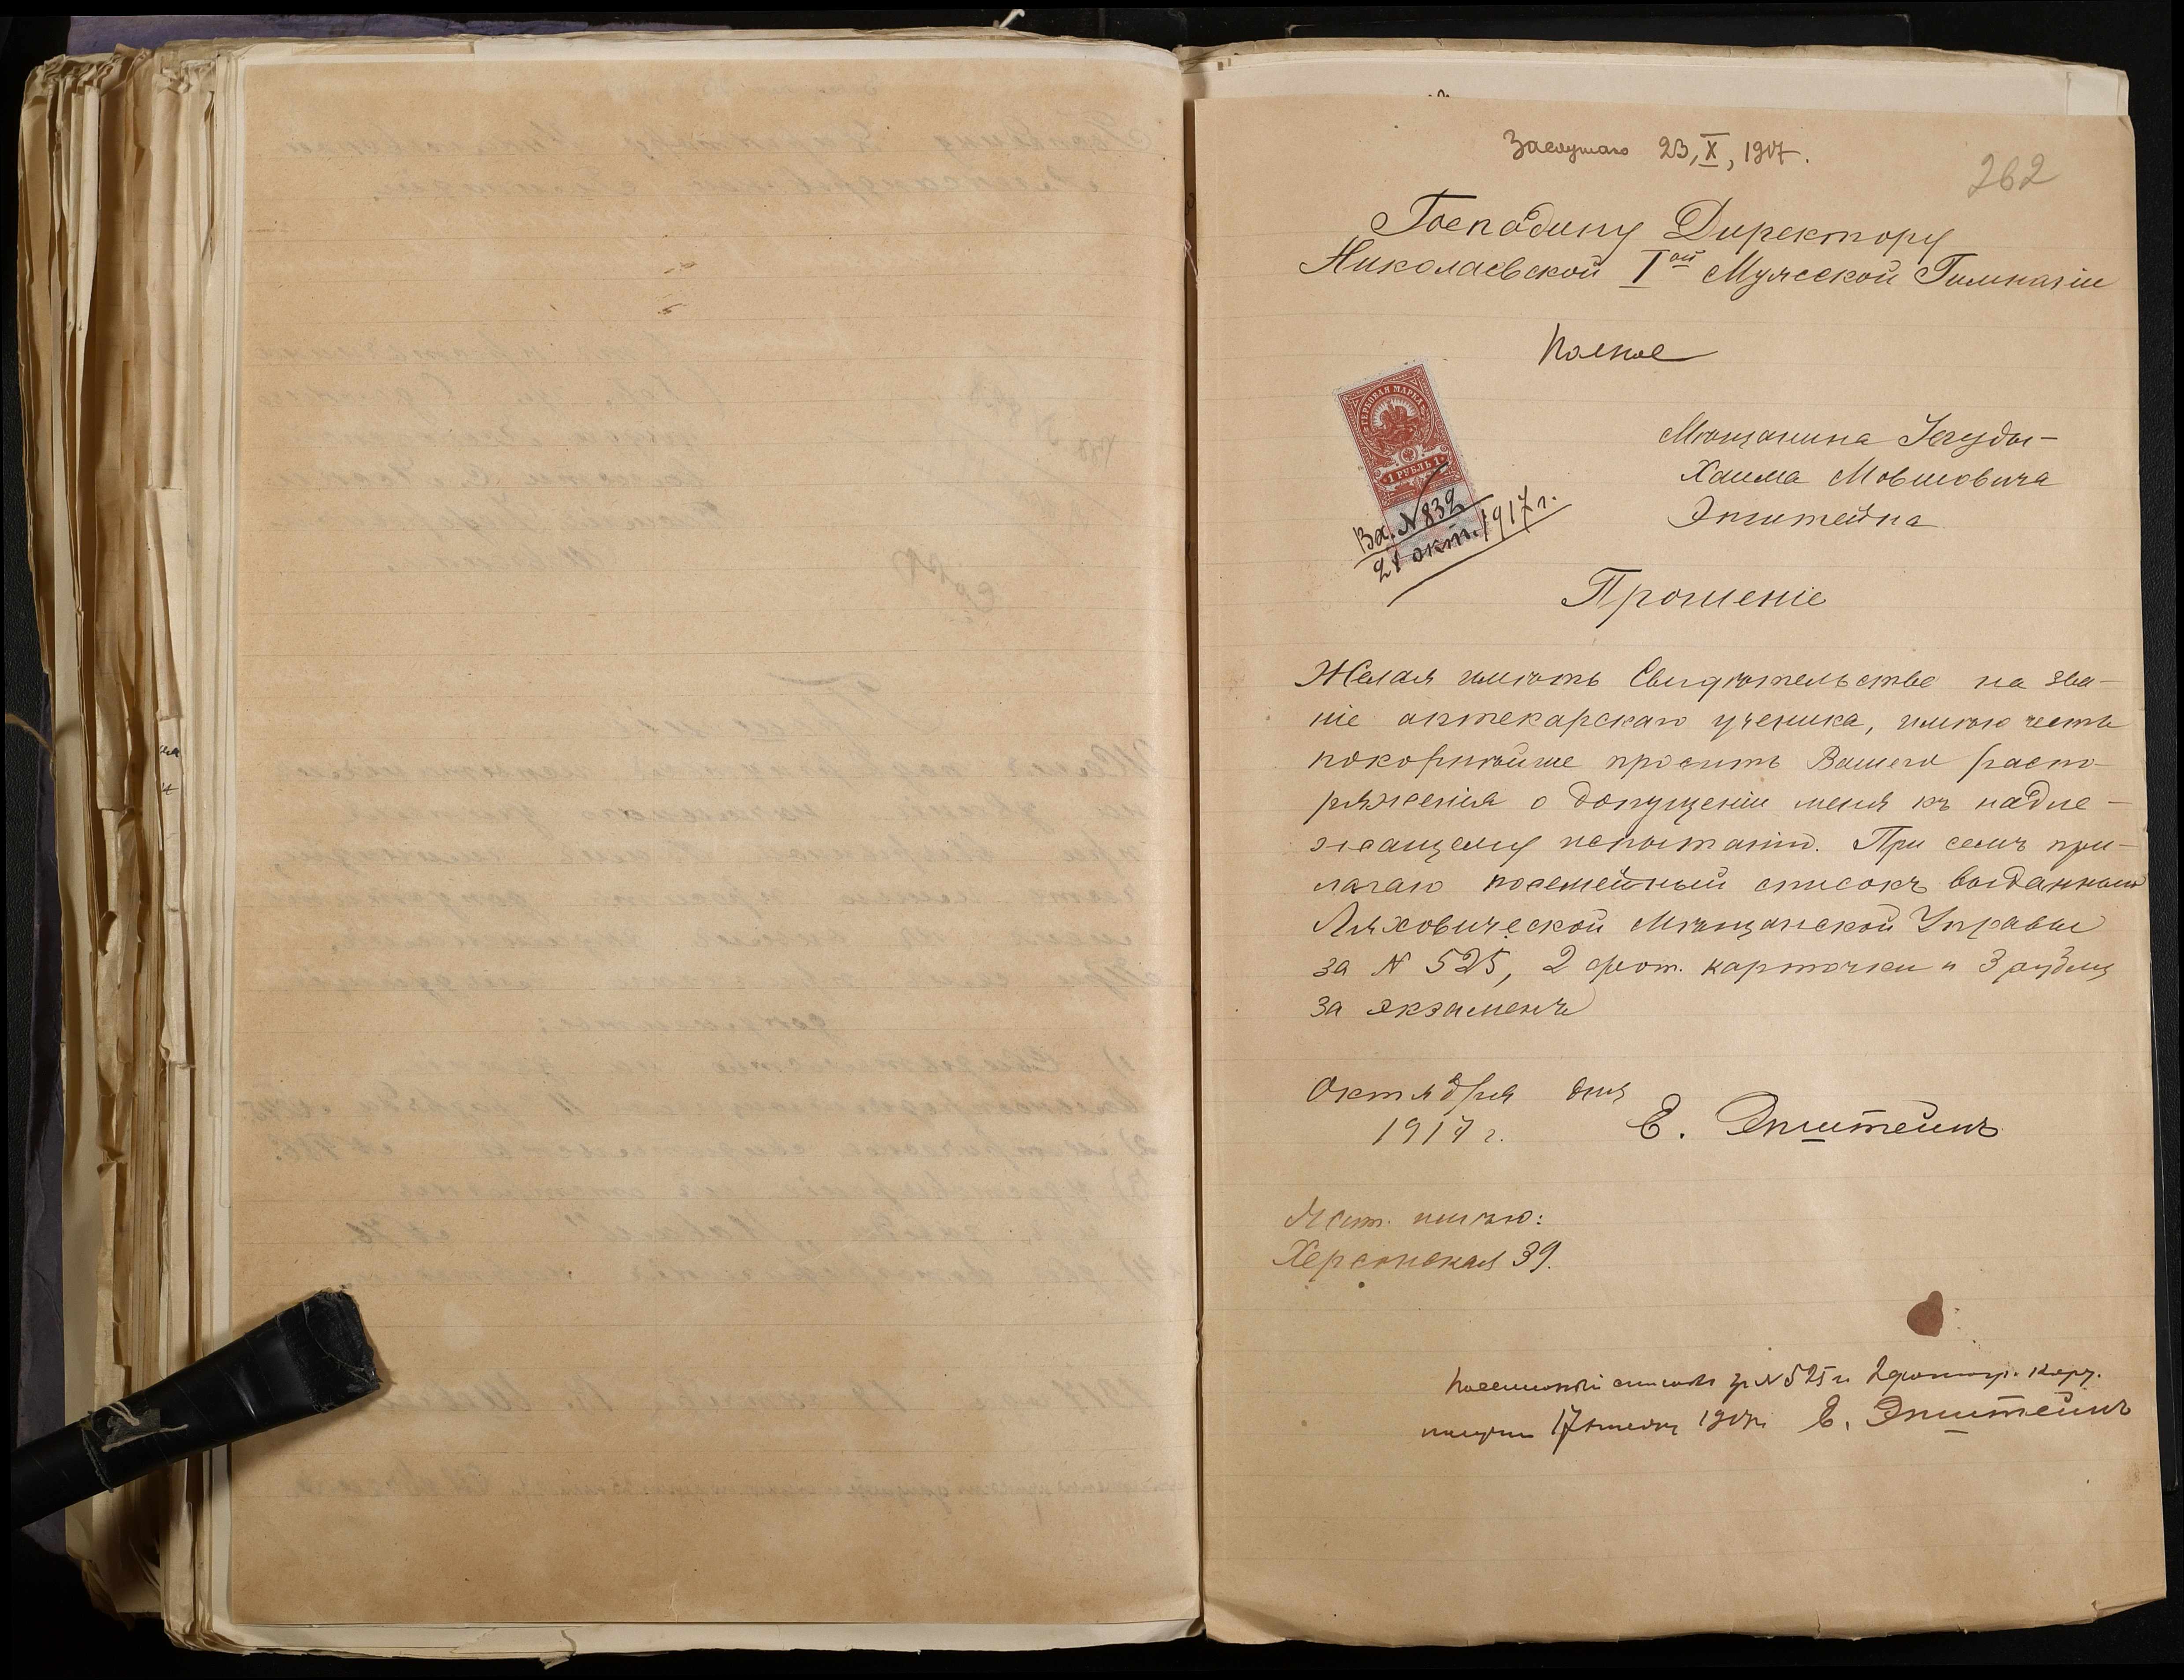 Заслушано 23, X, 1917.
262
Господину Директору
Николаевской Iой Мужеской Гимназіи
Полное
ГЕРБОВАЯ МАРКА
1 РУБЛЬ 1
Вх. № 832
21 окт. 1917 г.
Мѣщанина Іегуды-
Хаима Мовшовича
Эпштейна
Прошеніе
Желая имѣть Свидѣтельство на зва-
ніе аптекарскаго ученика, имѣю честь
покорнѣйше просить Вашего распо-
ряженія о допущеніи меня къ надле-
жащему испытанію. При семъ при-
лагаю посемейный списокъ выданный
Ляховической Мѣщанской Управы
за № 525, 2 фот. карточки и 3 рубля
за экзаменъ
Октября дня
1917 г. Е. Эпштейнъ
Жит. имѣю:
Херсонская 39.
списокъ за № 525 и 2 фотогр. карт.
получилъ 17 1917 г. Е. Эпштейнъ